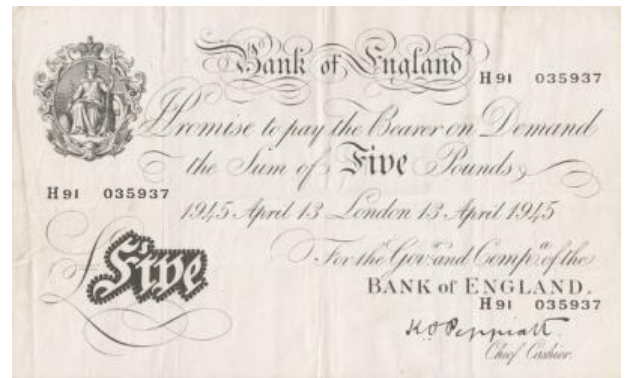 Bank of England
H91 035937
I Promise to pay the Bearer on Demand
the Sum of Five Pounds
H91 035937
1945 April 13 London 13 April 1945
For the Gov.r and Comp.a of the
Five
BANK of ENGLAND.
H91 035937
K O Peppiatt
Chief Cashier.